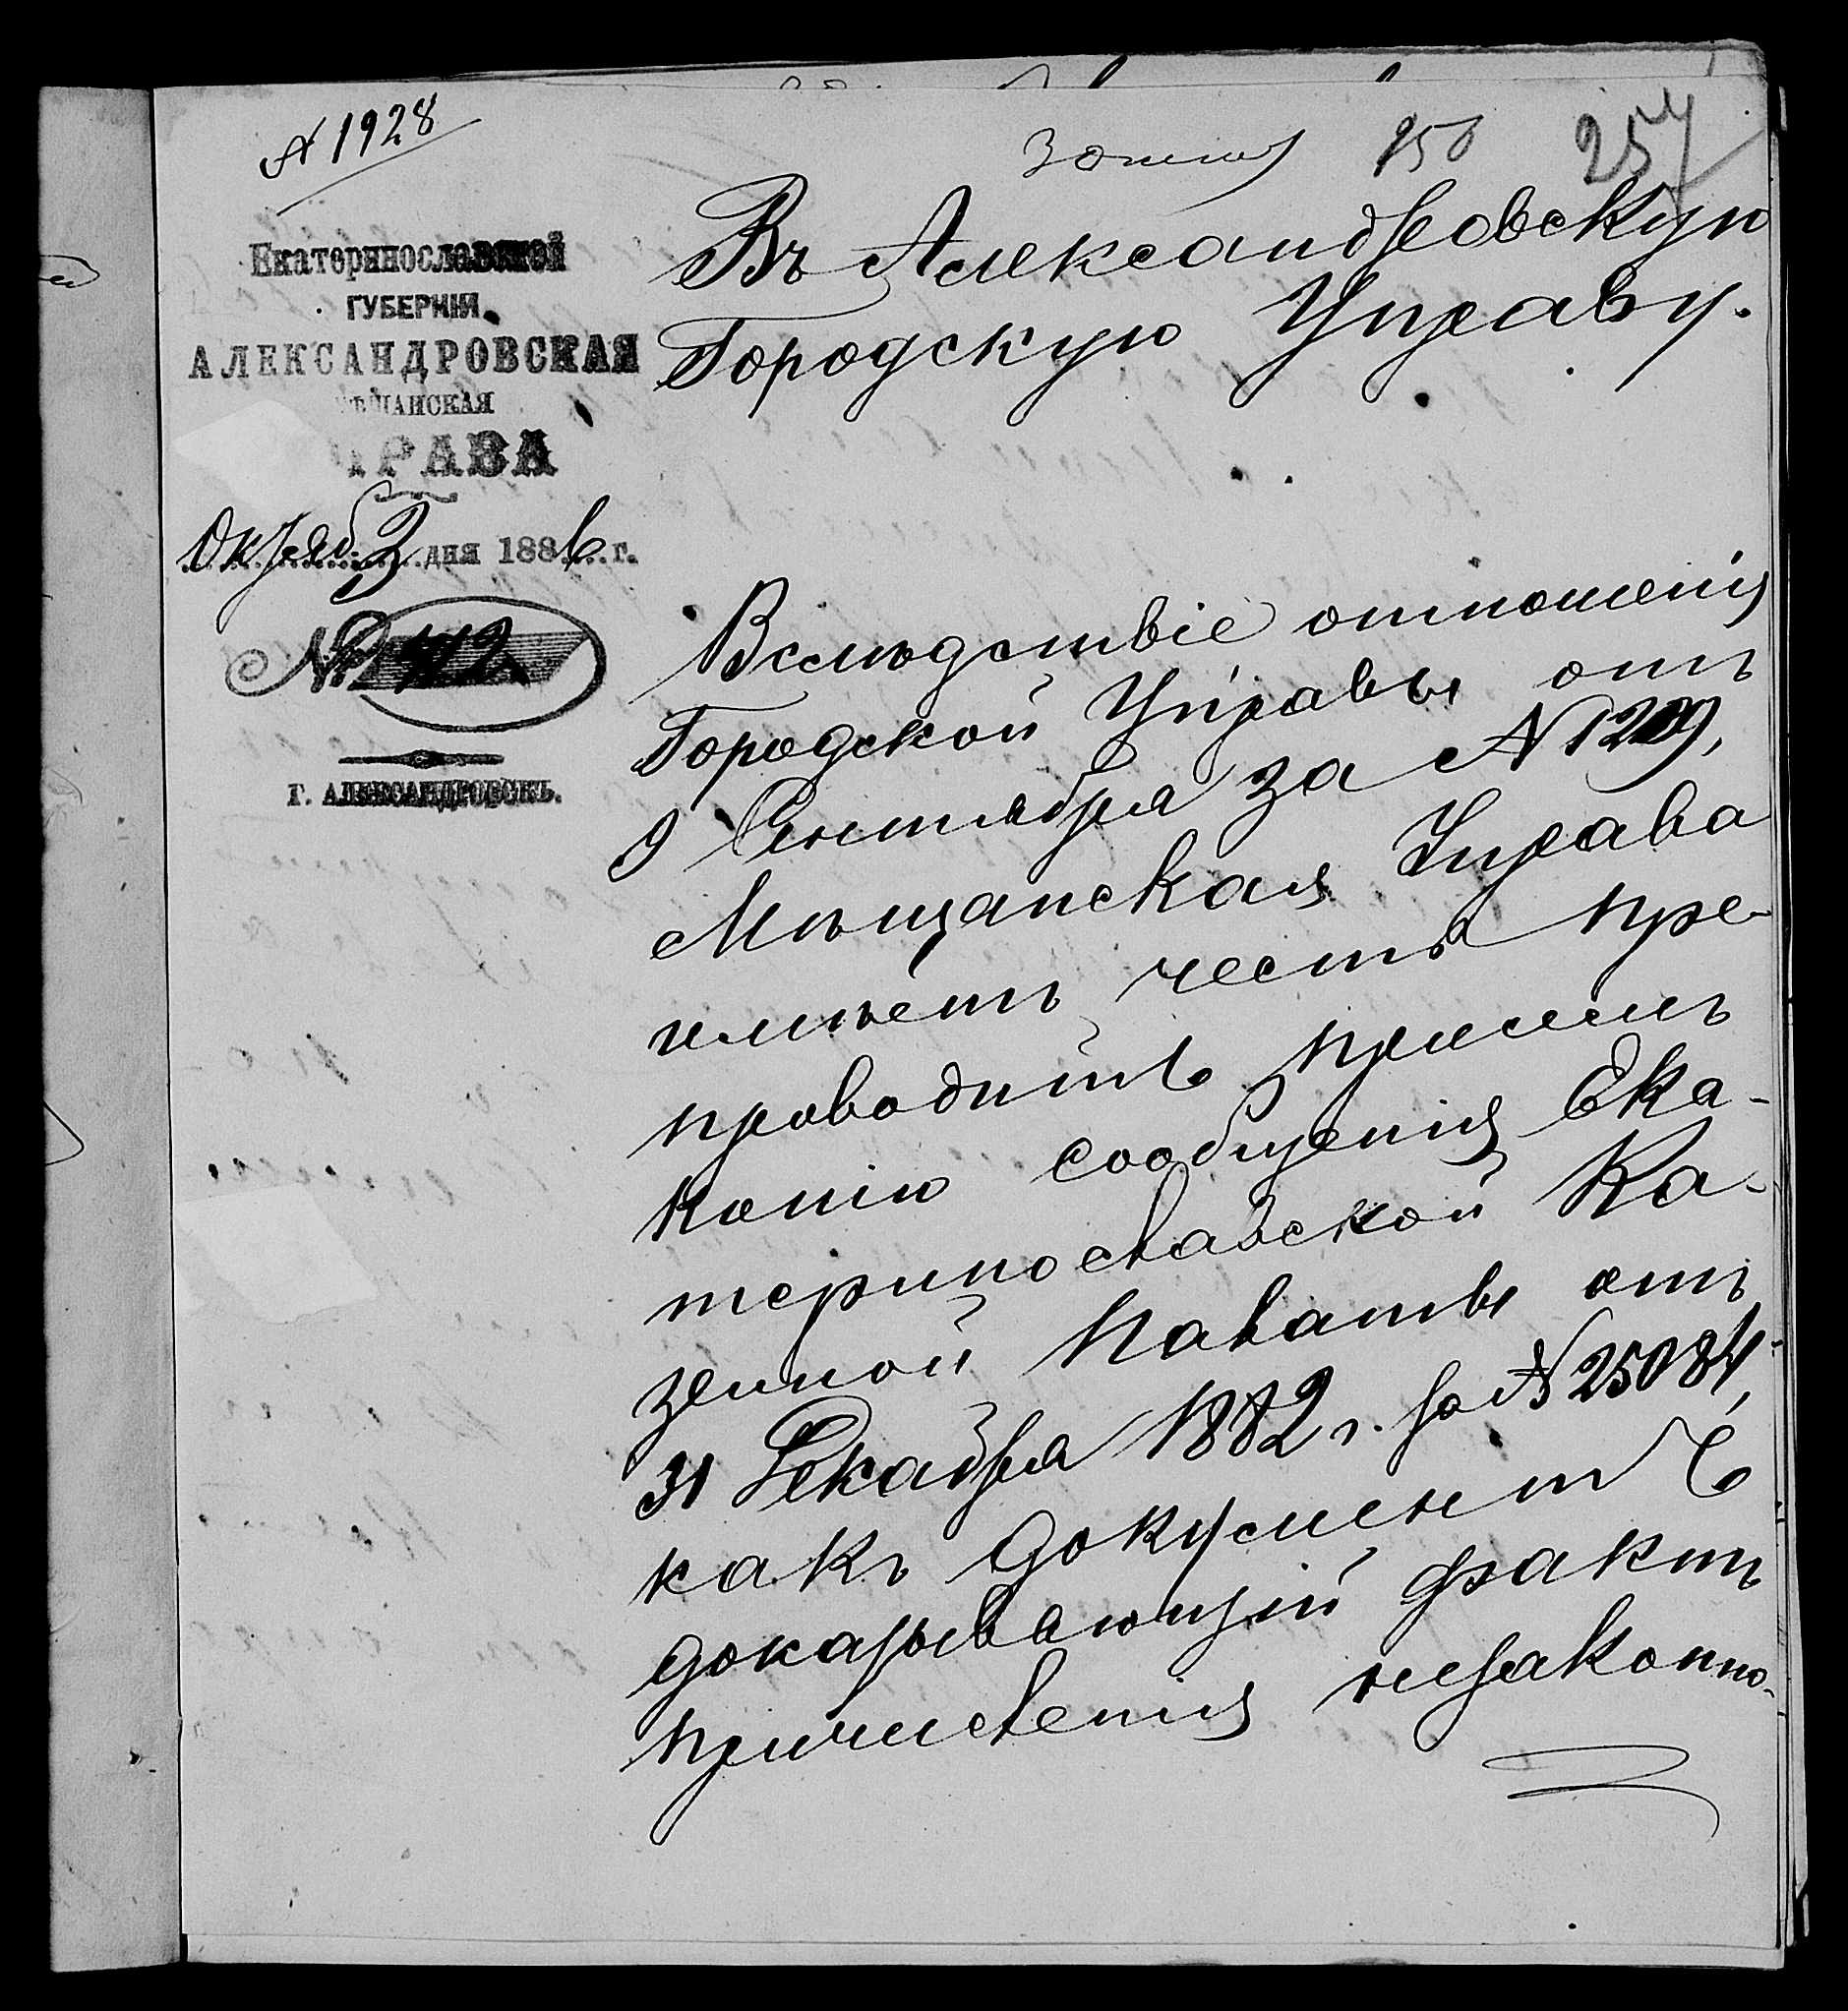 № 1928
257
Екатеринославской
ГУБЕРНІИ
АЛЕКСАНДРОВСКАЯ
ѢЩАНСКАЯ
УПРАВА
Октяб. 3 дня 1886 г.
№ 712
г. АЛЕКСАНДРОВСКЪ.
Въ Александровскую
Городскую Управу.
Вслѣдствіе отношенія
Городской Управы отъ
9 Сентября за № 1209,
Мѣщанская Управа
имѣетъ честь пре-
проводить присемъ
копію сообщенія Ека-
теринославской Ка-
зенной Палаты отъ
31 Декабря 1882 г. за № 25084,
какъ документъ
доказывающій фактъ
причисленія незаконно-